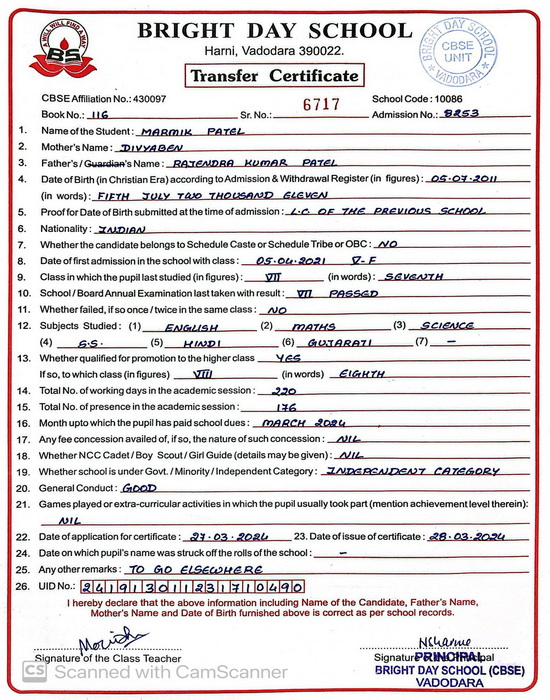 A WILL WILL FIND A WAY
BS
BRIGHT DAY SCHOOL
Harni, Vadodara 390022.
Transfer Certificate
BRIGHT DAY SCHOOL
CBSE
UNIT
* VADODARA *
CBSE Affiliation No.: 430097 School Code : 10086
Book No.: 116 Sr. No.: 6717 Admission No.: 8253
1. Name of the Student : MARMIK PATEL
2. Mother's Name : DIVYABEN
3. Father's / Guardian's Name : RAJENDRA KUMAR PATEL
4. Date of Birth (in Christian Era) according to Admission & Withdrawal Register (in figures) : 05-07-2011
(in words) : FIFTH JULY TWO THOUSAND ELEVEN
5. Proof for Date of Birth submitted at the time of admission : L.C OF THE PREVIOUS SCHOOL
6. Nationality : INDIAN
7. Whether the candidate belongs to Schedule Caste or Schedule Tribe or OBC : NO
8. Date of first admission in the school with class : 05.04.2021 V-F
9. Class in which the pupil last studied (in figures) : VII (in words) : SEVENTH
10. School / Board Annual Examination last taken with result : VII PASSED
11. Whether failed, if so once / twice in the same class : NO
12. Subjects Studied : (1) ENGLISH (2) MATHS (3) SCIENCE
(4) S.S. (5) HINDI (6) GUJARATI (7) –
13. Whether qualified for promotion to the higher class YES
If so, to which class (in figures) VIII (in words) EIGHTH
14. Total No. of working days in the academic session : 220
15. Total No. of presence in the academic session : 176
16. Month upto which the pupil has paid school dues : MARCH 2024
17. Any fee concession availed of, if so, the nature of such concession : NIL
18. Whether NCC Cadet / Boy Scout / Girl Guide (details may be given) : NIL
19. Whether school is under Govt. / Minority / Independent Category : INDEPENDENT CATEGORY
20. General Conduct : GOOD
21. Games played or extra-curricular activities in which the pupil usually took part (mention achievement level therein):
NIL
22. Date of application for certificate : 27-03-2024 23. Date of issue of certificate : 28-03-2024
24. Date on which pupil's name was struck off the rolls of the school : –
25. Any other remarks : TO GO ELSEWHERE
26. UID No.: 241913011231710490
I hereby declare that the above information including Name of the Candidate, Father's Name,
Mother's Name and Date of Birth furnished above is correct as per school records.
Signature of the Class Teacher Signature of the Principal
PRINCIPAL
BRIGHT DAY SCHOOL (CBSE)
VADODARA
CS Scanned with CamScanner